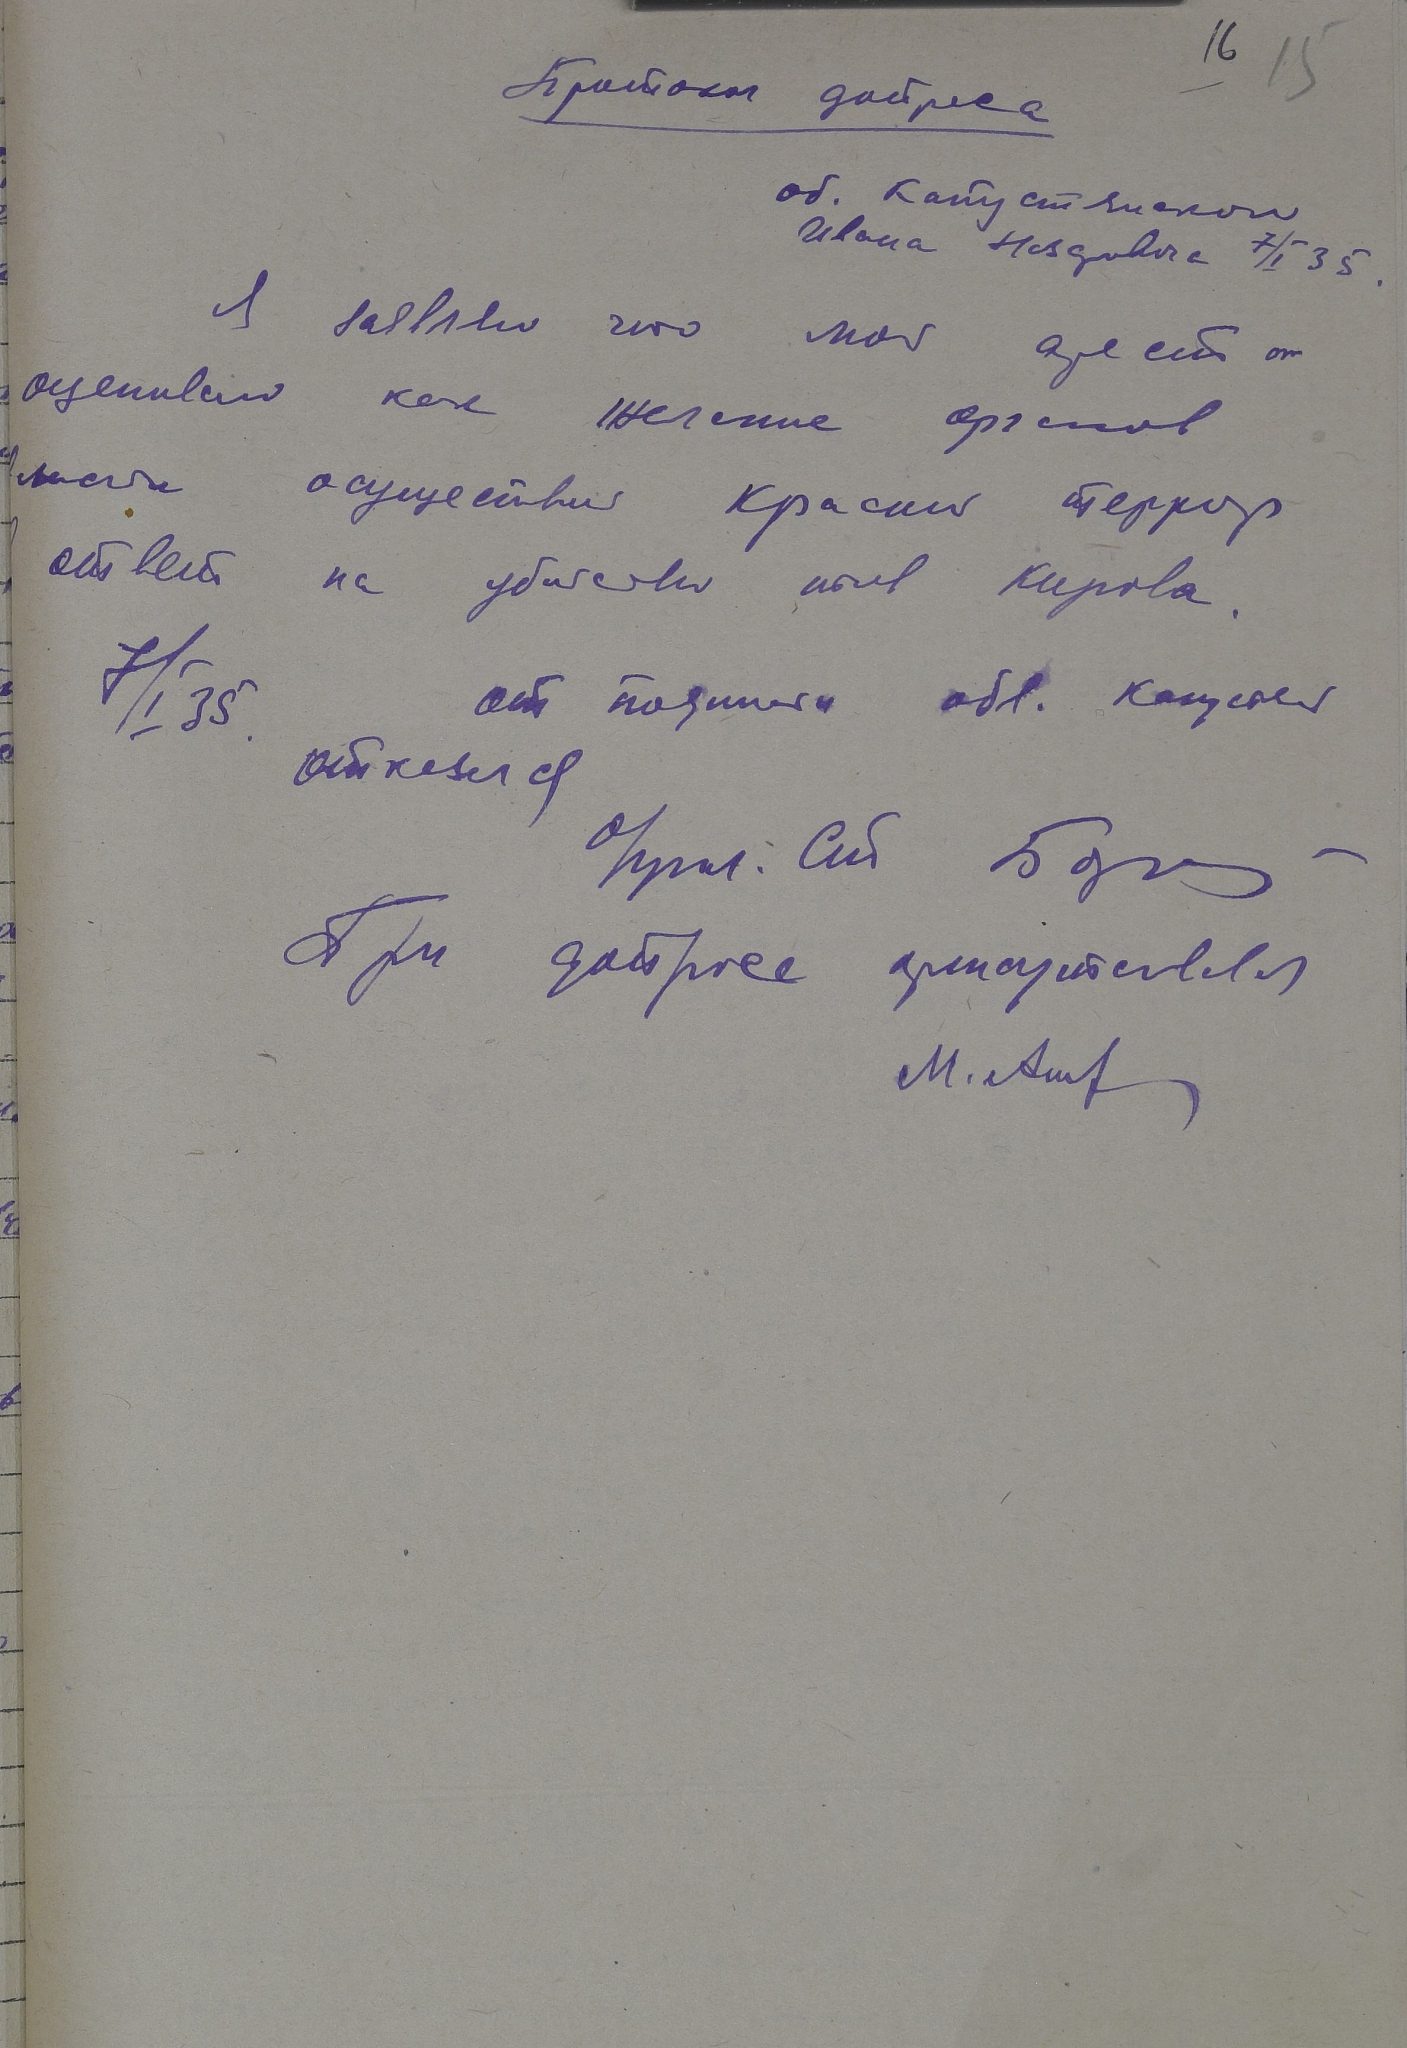 16 15
Протокол допроса
об. Капустянского
Ивана 7/I 35.
Я заявляю что мой арест
оцениваю как желание органов
власти осуществить красный террор
ответ на убийство Кирова.
7/I 35. от подписи обв. Капустян
отказался
Опер. уп.
При допросе присутствовал
М.